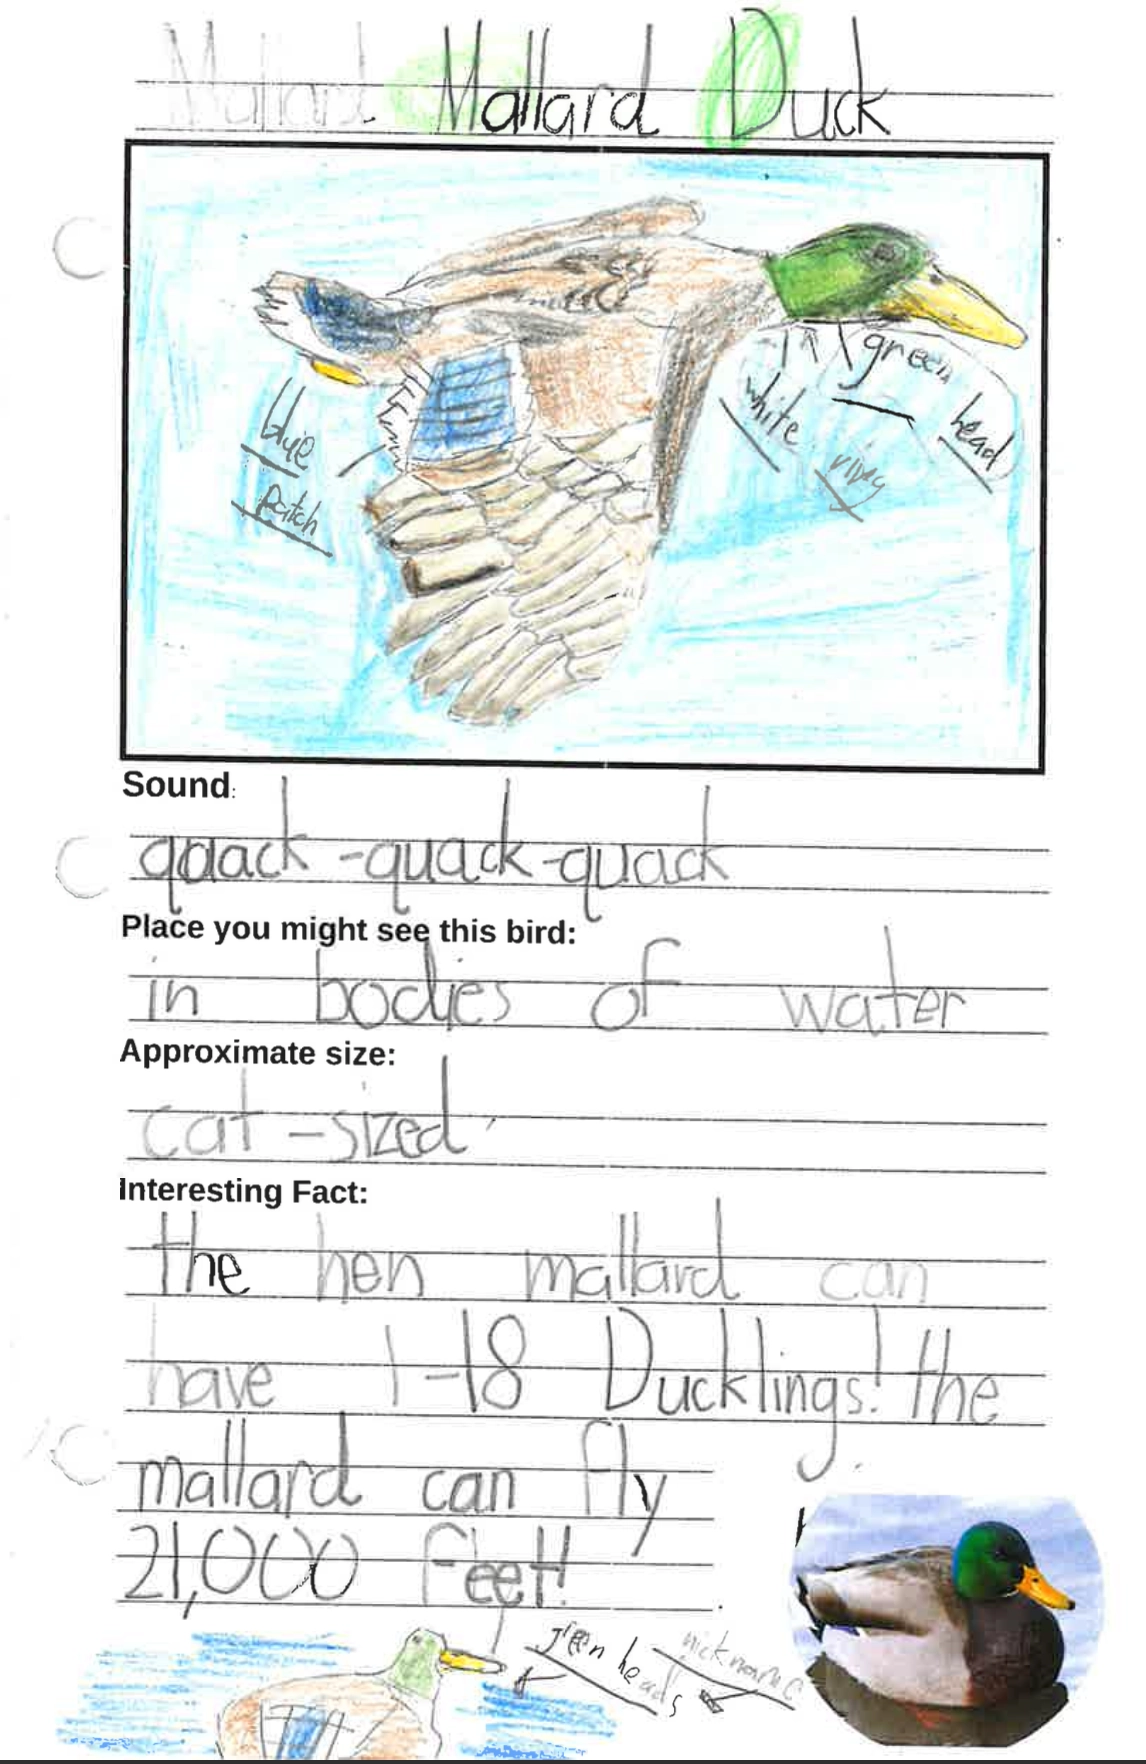 Mallard Mallard Duck
green
head
white
ring
blue
patch
Sound:
quack-quack-quack
Place you might see this bird:
in bodies of water
Approximate size:
cat-sized
Interesting Fact:
the hen mallard can
have 1-18 Ducklings! the
mallard can fly
21,000 feet!
green heads
nickname